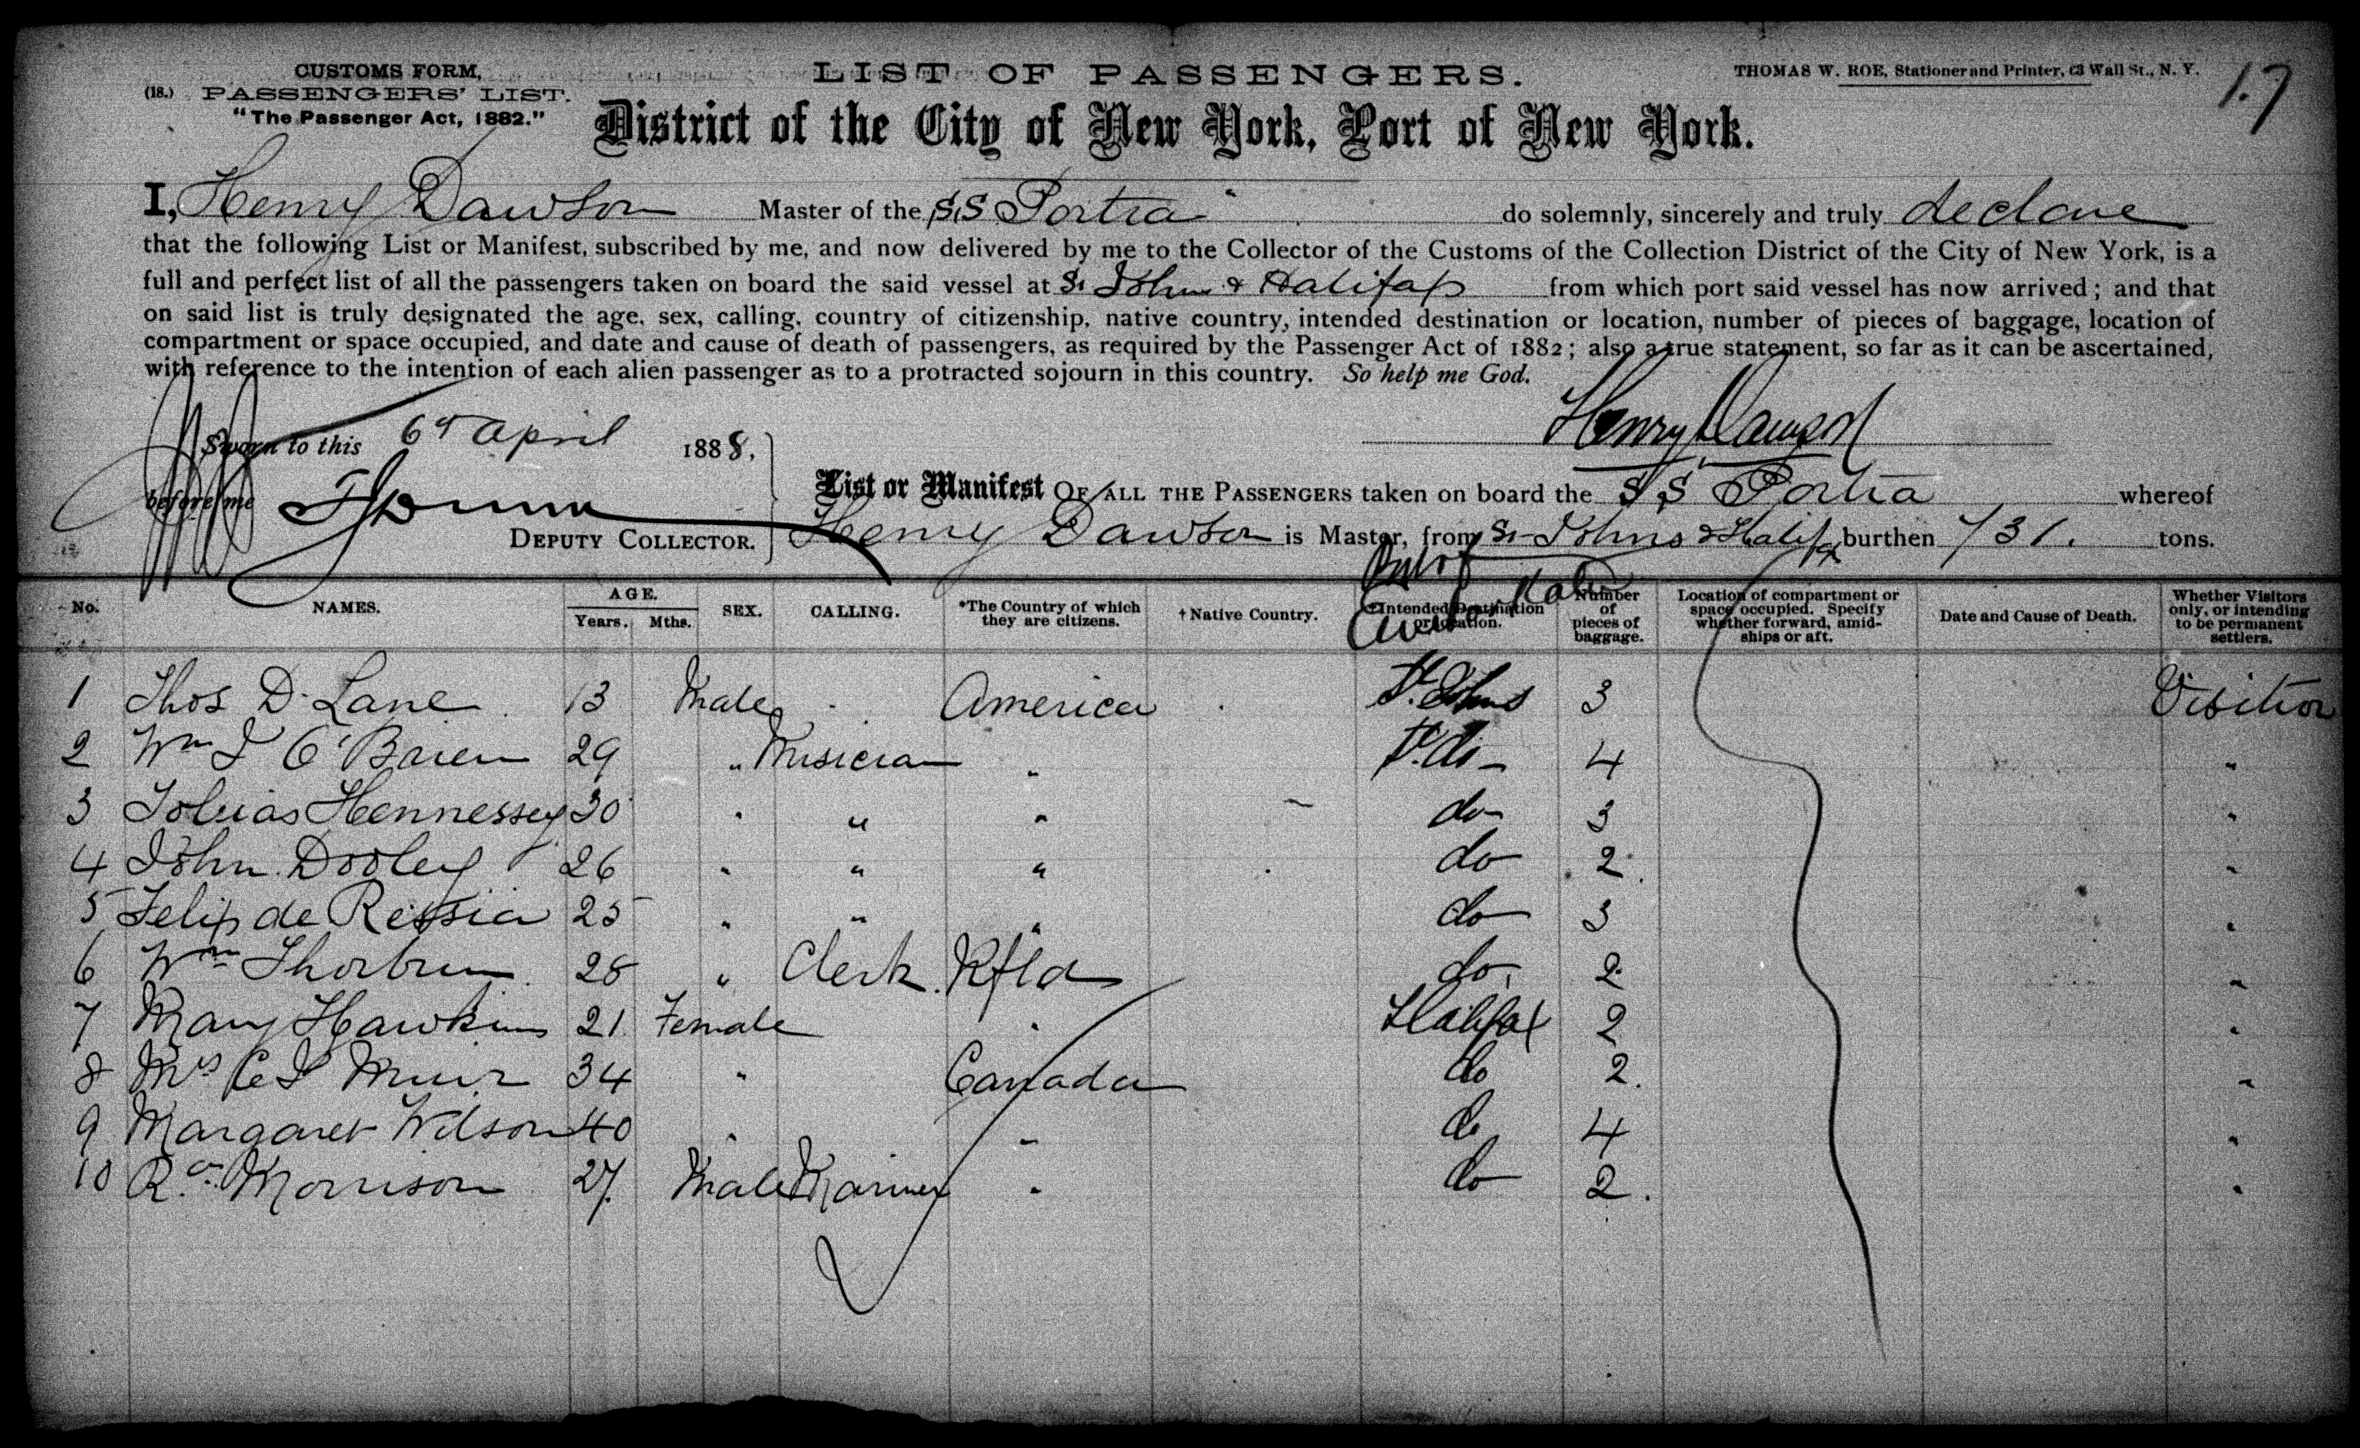 CUSTOMS FORM,
(18.) PASSENGERS' LIST.
"The Passenger Act, 1882."
LIST OF PASSENGERS.
THOMAS W. ROE, Stationer and Printer, 63 Wall St., N. Y.
17
District of the City of New York, Port of New York.
I, Henry Dawson Master of the S.S Portia do solemnly, sincerely and truly declare
that the following List or Manifest, subscribed by me, and now delivered by me to the Collector of the Customs of the Collection District of the City of New York, is a
full and perfect list of all the passengers taken on board the said vessel at St John & Halifax from which port said vessel has now arrived; and that
on said list is truly designated the age, sex, calling, country of citizenship, native country, intended destination or location, number of pieces of baggage, location of
compartment or space occupied, and date and cause of death of passengers, as required by the Passenger Act of 1882; also a true statement, so far as it can be ascertained,
with reference to the intention of each alien passenger as to a protracted sojourn in this country. So help me God.
Henry Dawson
Sworn to this 6th April 1888,
before me
DEPUTY COLLECTOR.
List or Manifest OF ALL THE PASSENGERS taken on board the S.S Portia whereof
Henry Dawson is Master, from St Johns & Halifax burthen 731. tons.
No. NAMES. AGE. Years. Mths. SEX. CALLING. *The Country of which they are citizens. †Native Country. Intended Destination or location. Number of pieces of baggage. Location of compartment or space occupied. Specify whether forward, amidships or aft. Date and Cause of Death. Whether Visitors only, or intending to be permanent settlers.
1 Thos D. Lane 13 Male America St. Johns 3 Visitor
2 Wm J O'Brien 29 " Musician " St. do 4 "
3 Tobias Hennessey 30 " " " do 3 "
4 John Dooley 26 " " " do 2 "
5 Felip de Ressia 25 " " " do 3 "
6 Wm Thorburn 28 " Clerk Nfld do 2 "
7 Mary Hawkins 21 Female " Halifax 2 "
8 Mrs C J Muir 34 " Canada do 2 "
9 Margaret Wilson 40 " " do 4 "
10 Morrison 27 Male Mariner " do 2 "